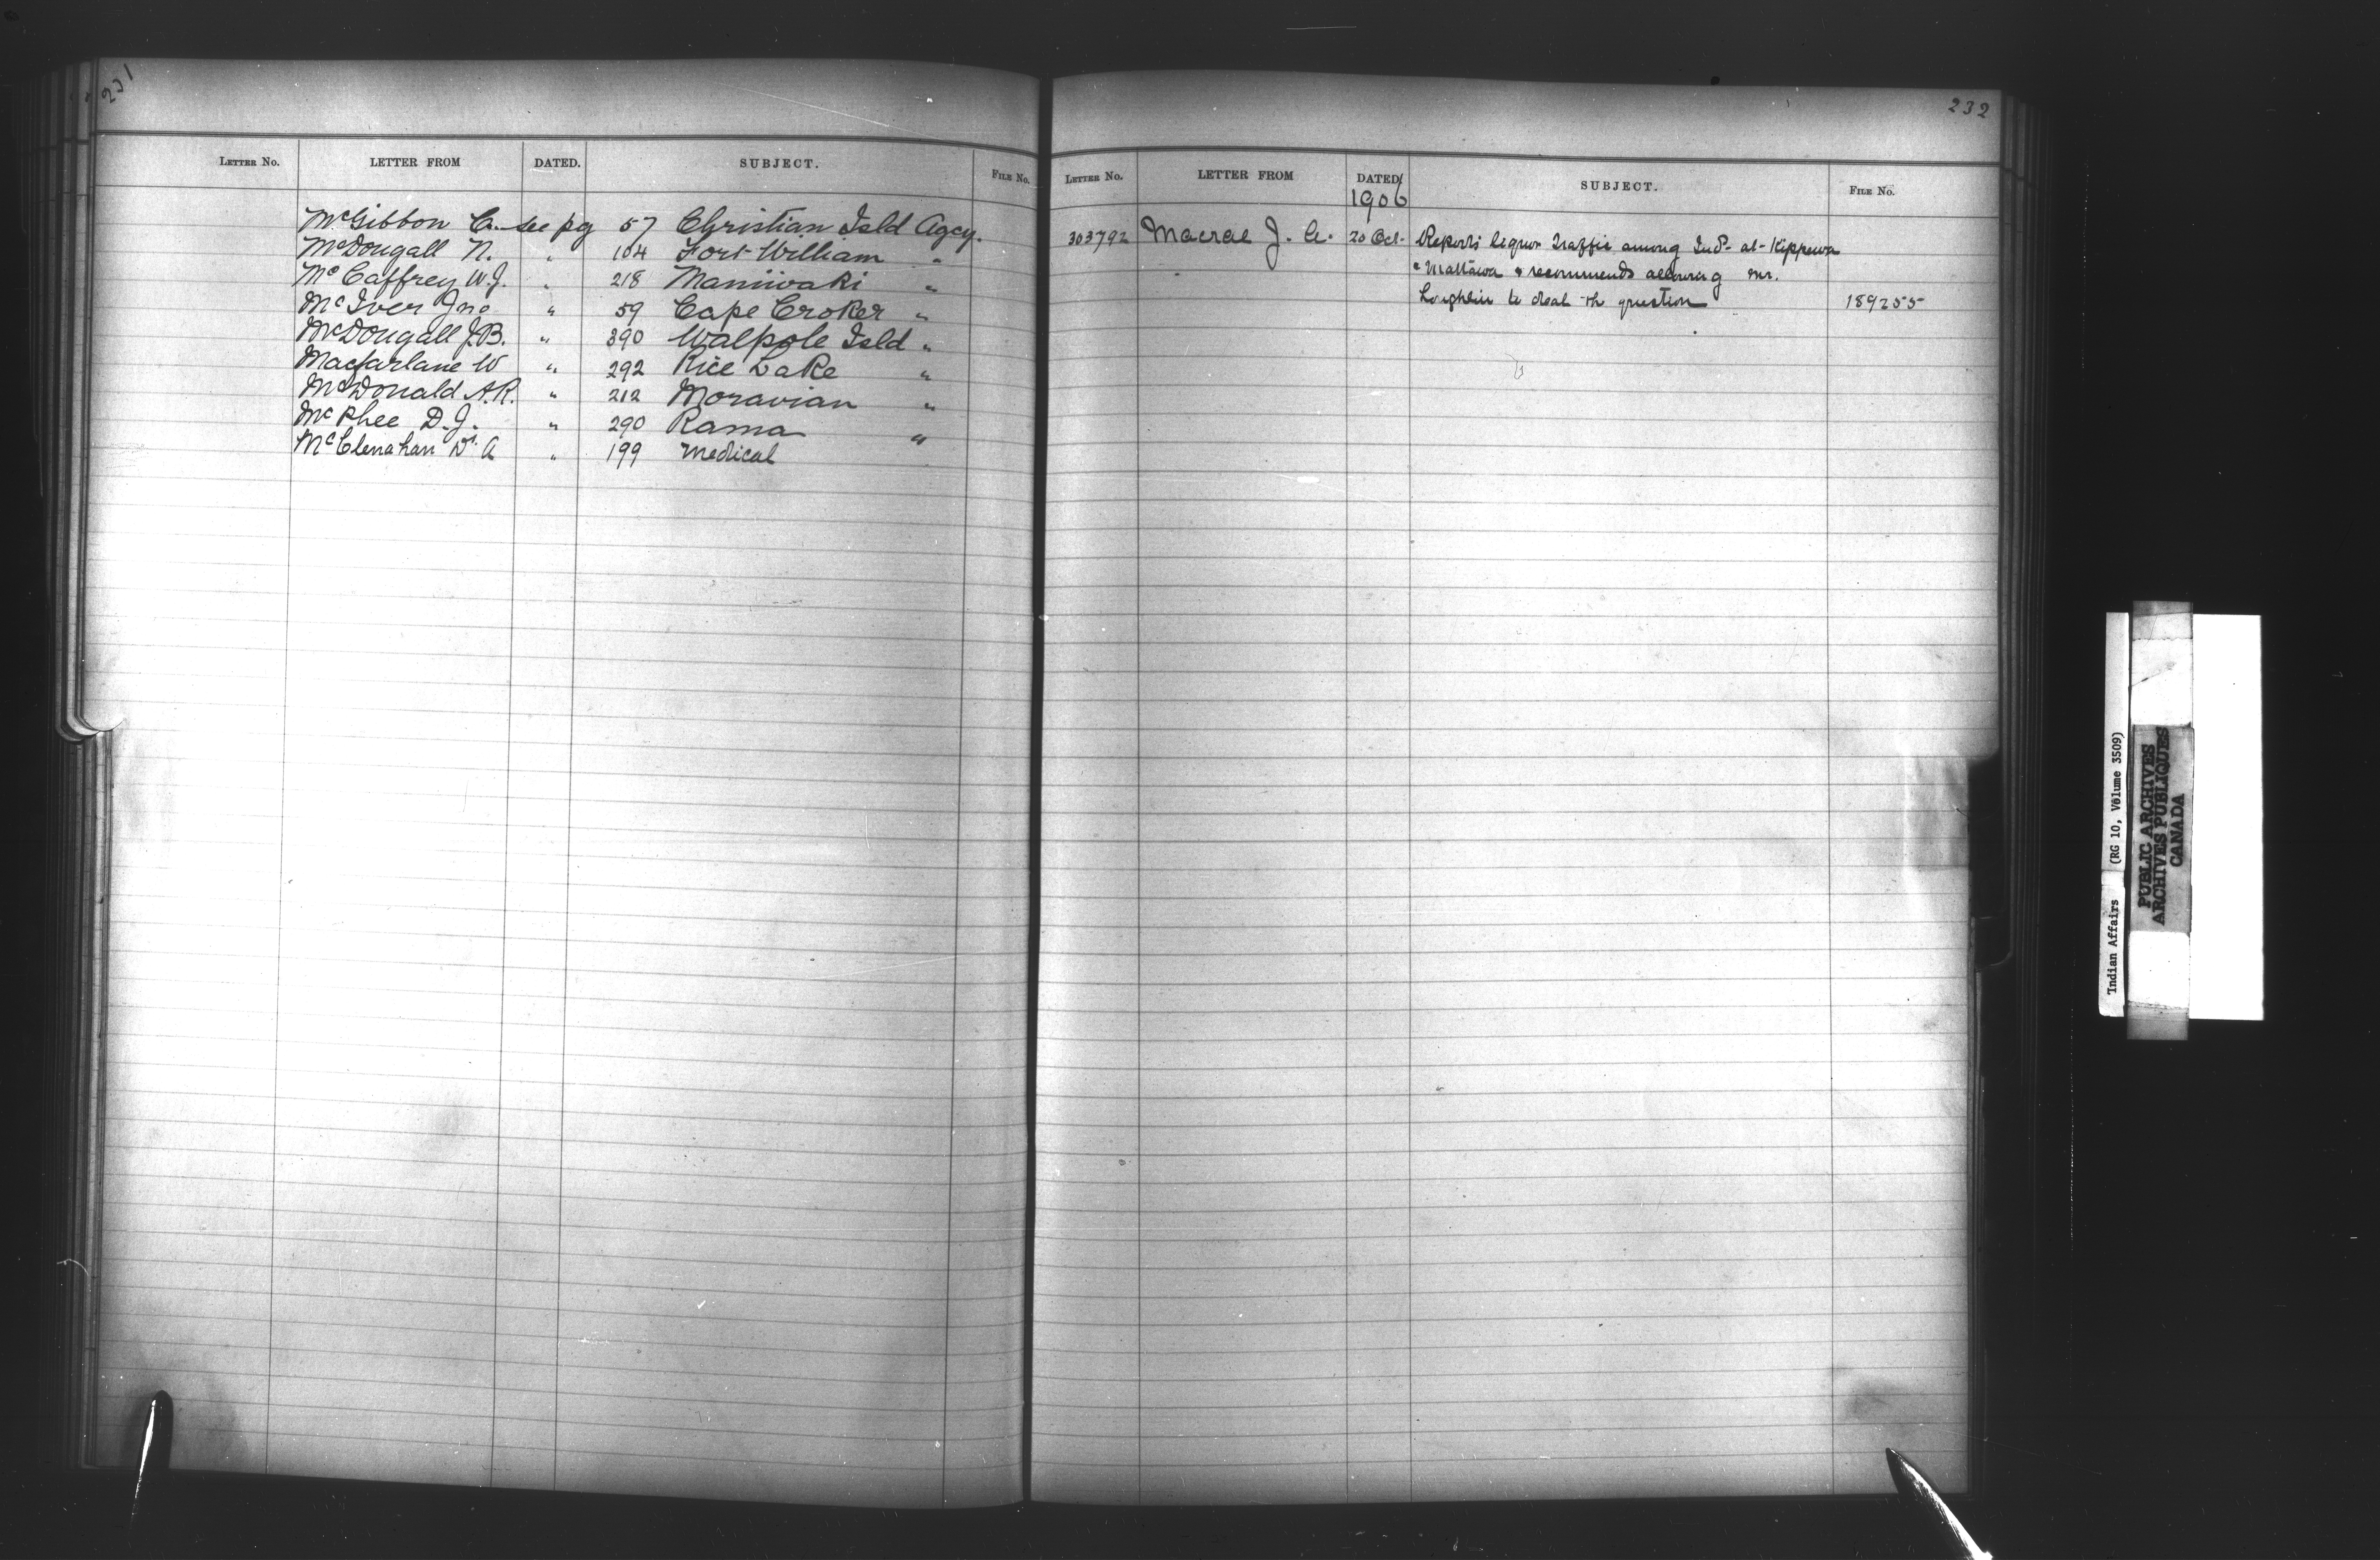 231
LETTER NO. LETTER FROM DATED. SUBJECT. FILE NO.
McGibbon C. see pg 57 Christian Isld Agcy.
McDougall N. " 104 Fort William "
McCaffrey W.J. " 218 Maniiwaki "
McIver Jno " 59 Cape Croker "
McDougall J.B. " 390 Walpole Isld "
Macfarlane W " 292 Rice Lake "
McDonald A.R. " 212 Moravian "
McPhee D.J. " 290 Rama "
McClenahan Dr. A " 199 Medical
232
LETTER NO. LETTER FROM DATED SUBJECT. FILE NO.
1906
303792 Macrae J. A. 20 Oct. Reports liquor traffic among Inds. at Kippewa
" Mattawa & recommends allowing Mr.
Loughlin to deal th question 189255
Indian Affairs (RG 10, Volume 3509)
PUBLIC ARCHIVES
ARCHIVES PUBLIQUES
CANADA